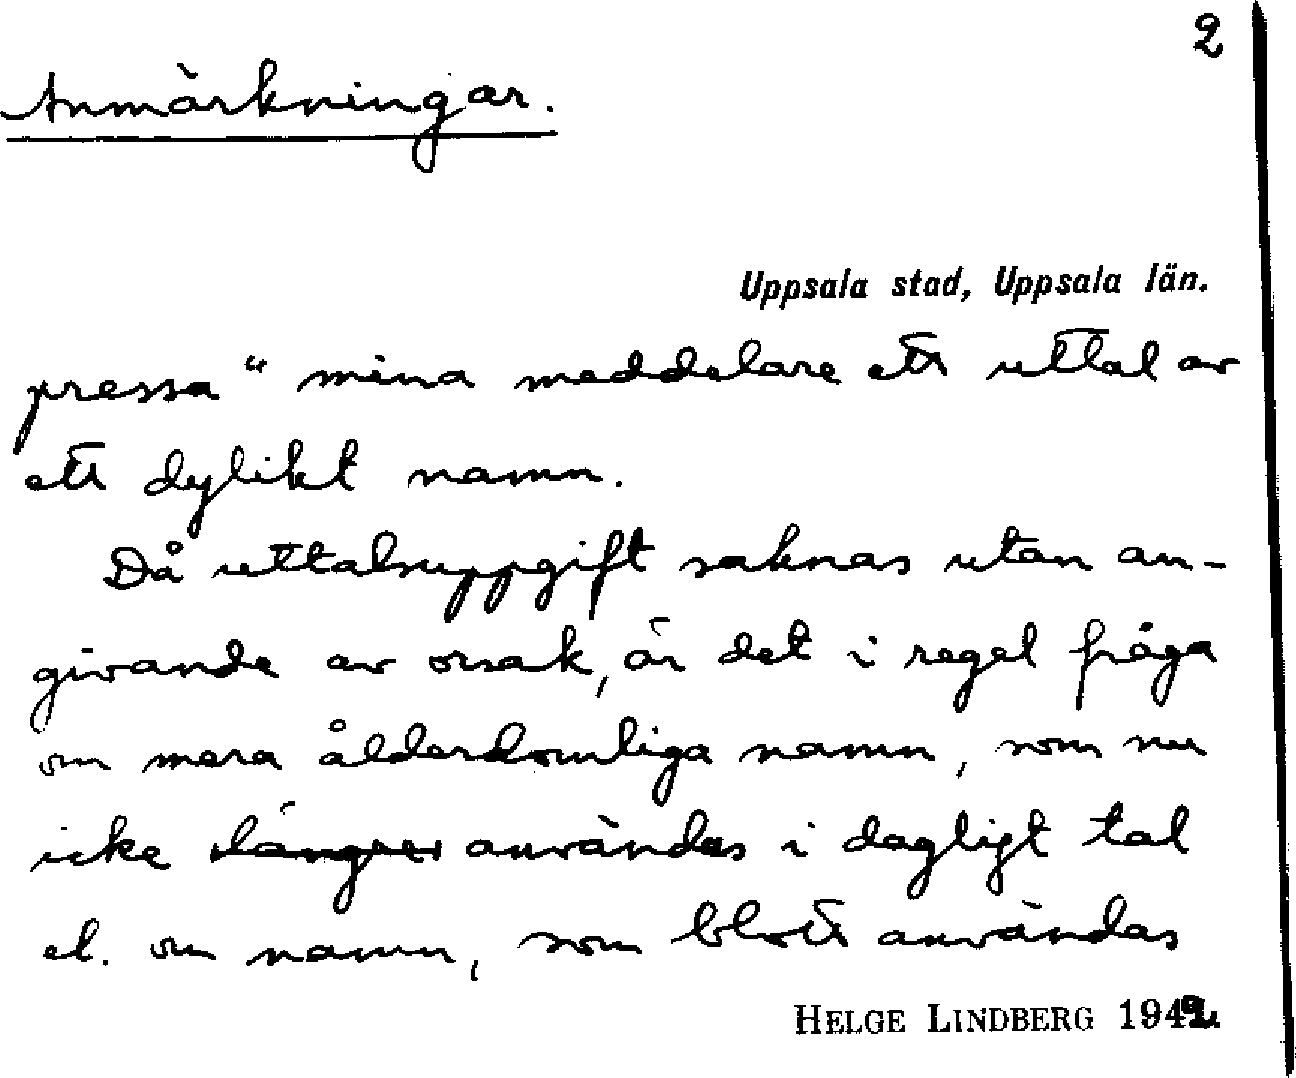 2
Anmärkningar.
Uppsala stad, Uppsala län.
pressa" mina meddelare ett uttal av
ett dylikt namn.
Då uttalsuppgift saknas utan an-
givande av orsak, är det i regel fråga
om mera ålderdomliga namn, som nu
icke längre användas i dagligt tal
el. om namn, som blott användas
HELGE LINDBERG 1942